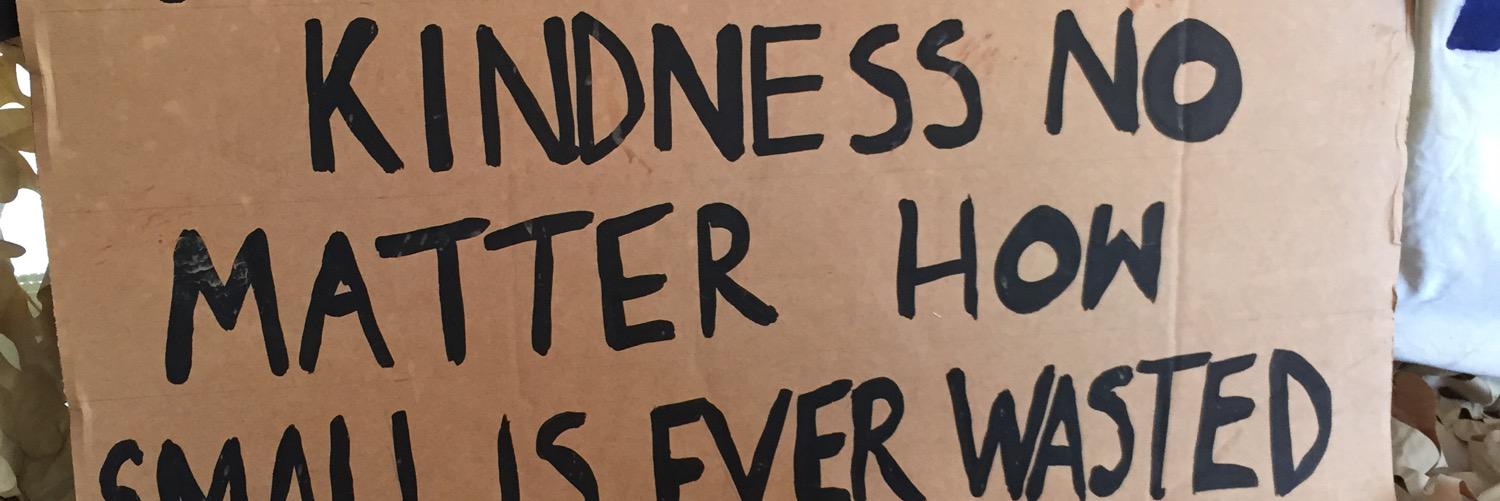 KINDNESS NO
MATTER HOW
SMALL IS EVER WASTED